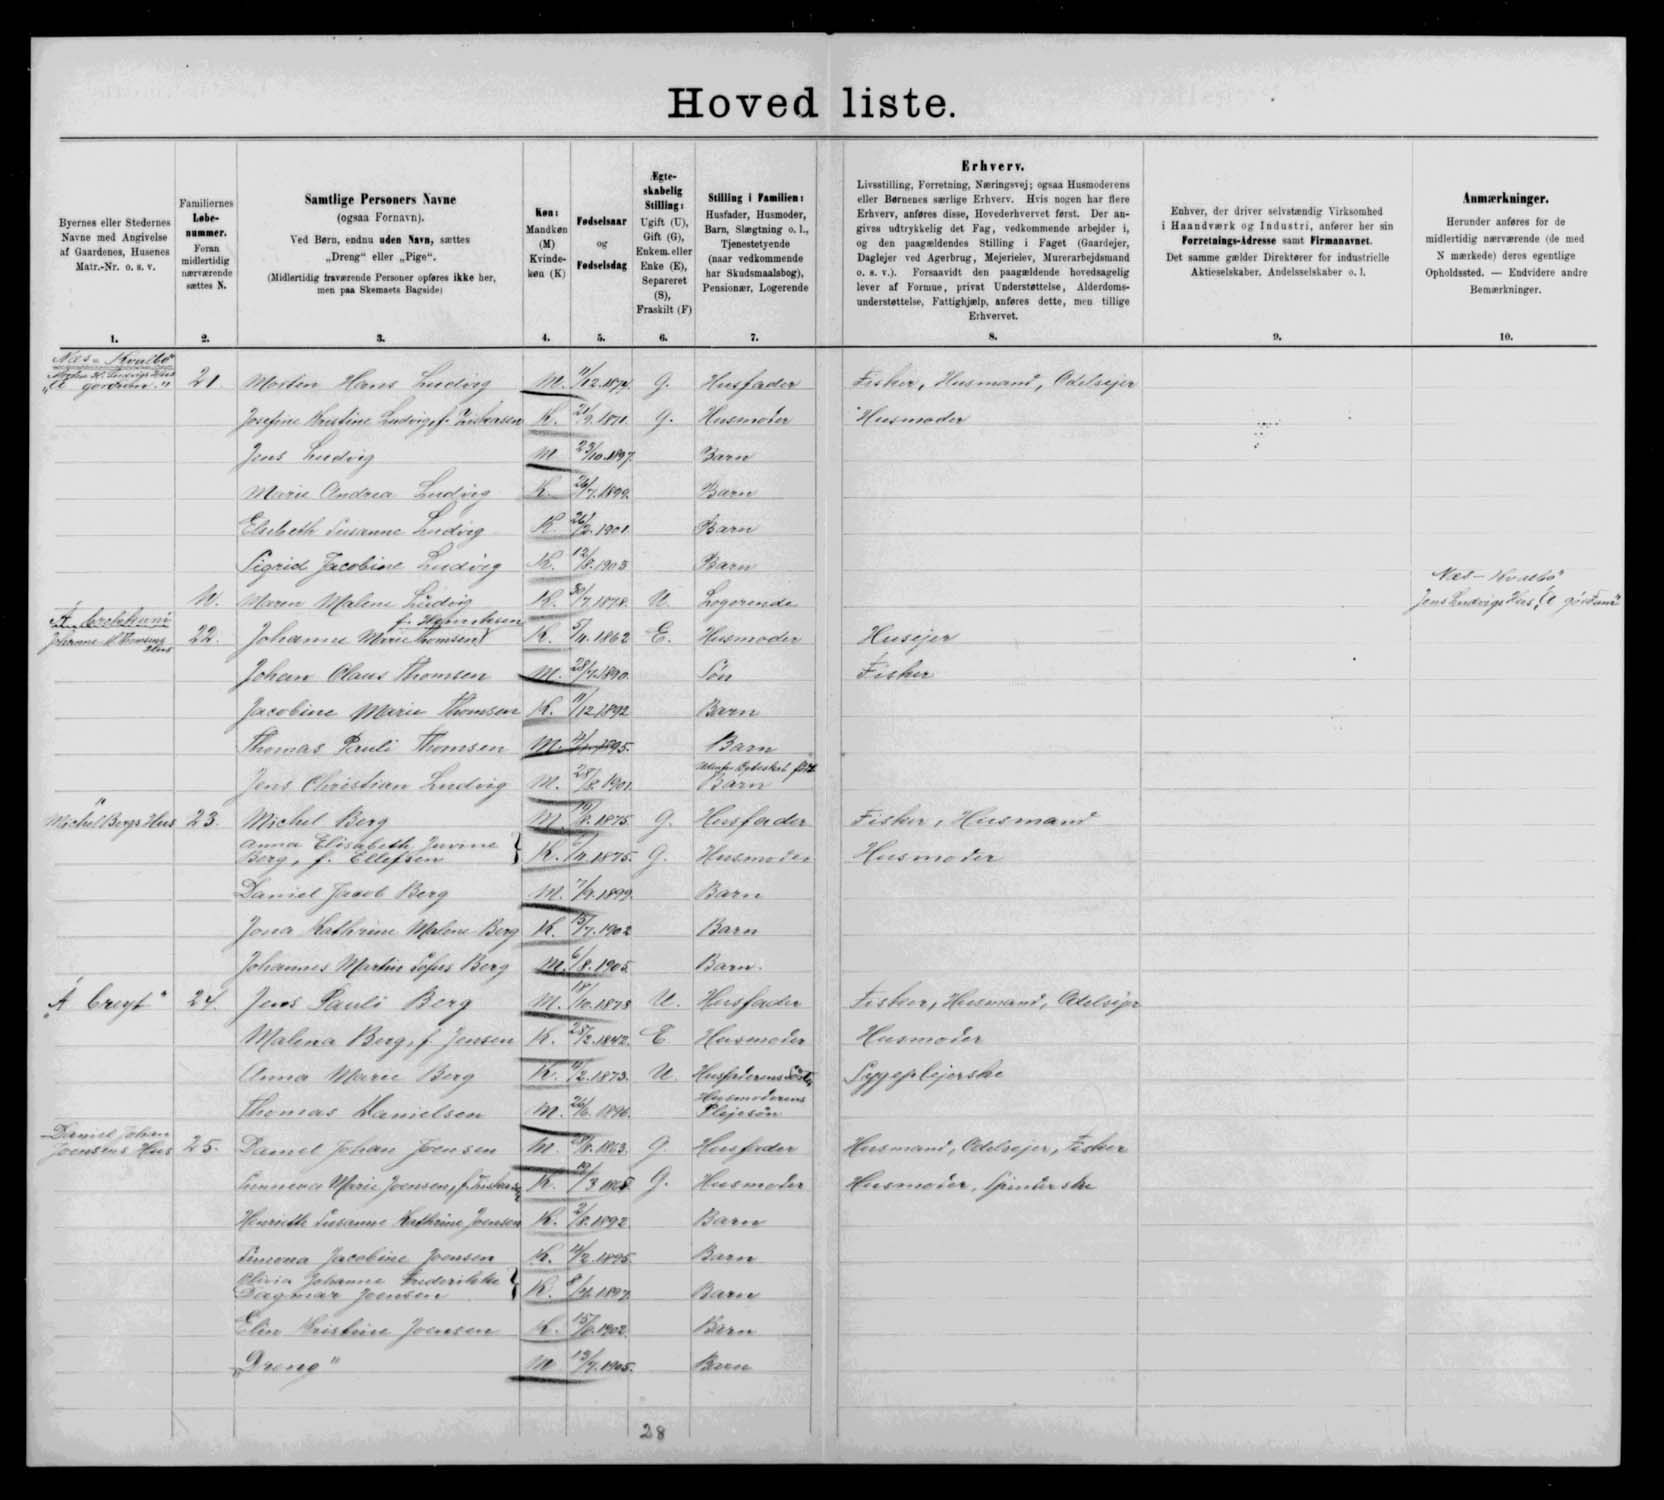 Hoved liste.
Byernes eller Stedernes
Navne med Angivelse
af Gaardenes, Husenes
Matr.-Nr. o. s. v.
1.
Familiernes
Løbe-
nummer.
Foran
midlertidig
nærværende
sættes N.
2.
Samtlige Personers Navne
(ogsaa Fornavn).
Ved Børn, endnu uden Navn, sættes
„Dreng“ eller „Pige“.
(Midlertidig fraværende Personer opføres ikke her,
men paa Skemaets Bagside)
3.
Køn:
Mandkøn
(M)
Kvinde-
køn (K)
4.
Fødselsaar
og
Fødselsdag
5.
Ægte-
skabelig
Stilling:
Ugift (U),
Gift (G),
Enkem. eller
Enke (E),
Separeret
(S),
Fraskilt (F)
6.
Stilling i Familien:
Husfader, Husmoder,
Barn, Slægtning o. l.,
Tjenestetyende
(naar vedkommende
har Skudsmaalsbog),
Pensionær, Logerende
7.
Erhverv.
Livsstilling, Forretning, Næringsvej; ogsaa Husmoderens
eller Børnenes særlige Erhverv. Hvis nogen har flere
Erhverv, anføres disse, Hovederhvervet først. Der an-
gives udtrykkelig det Fag, vedkommende arbejder i,
og den paagældendes Stilling i Faget (Gaardejer,
Daglejer ved Agerbrug, Mejerielev, Murerarbejdsmand
o. s. v.). Forsaavidt den paagældende hovedsagelig
lever af Formue, privat Understøttelse, Alderdoms-
understøttelse, Fattighjælp, anføres dette, men tillige
Erhvervet.
8.
Enhver, der driver selvstændig Virksomhed
i Haandværk og Industri, anfører her sin
Forretnings-Adresse samt Firmanavnet.
Det samme gælder Direktører for industrielle
Aktieselskaber, Andelsselskaber o. l.
9.
Anmærkninger.
Herunder anføres for de
midlertidig nærværende (de med
N mærkede) deres egentlige
Opholdssted. — Endvidere andre
Bemærkninger.
10.
Næs - Hvalbø
Morten H. Ludvigs Hus
21. Morten Hans Ludvig M. 11/12.1874. G. Husfader Fisker, Husmand, Odelsejer
Josefine Kristine Ludvig, f. K. 21/9.1871. G. Husmoder Husmoder
Jens Ludvig M 23/10.1897. Barn
Marie Andrea Ludvig K. 26/7.1899. Barn
Elsebeth Susanne Ludvig K. 26/2.1901. Barn
Sigrid Jacobine Ludvig K. 12/8.1903 Barn
Næs - Hvalbø
N. Maren Malene Ludvig K. 30/7.1878. U. Logerende Jens Ludvigs Hus,
f. Henriksen
Johanne M. Thomsens Hus 22. Johanne Marie Thomsen K. 5/4.1862 E. Husmoder Husejer
Johan Claus Thomsen M. 28/7.1890. Søn Fisker
Jacobine Marie Thomsen K. 11/12.1892 Barn
Thomas Pauli Thomsen M. 1895. Barn
Jens Christian Ludvig M. 28/8.1901. Barn
Michel Bergs Hus 23. Michel Berg M. 19/8.1875. G. Husfader Fisker, Husmand
Anna Elisabeth Juvine
Berg, f. Ellefsen K. 1875. G. Husmoder Husmoder
Daniel Jacob Berg M. 7/9.1899. Barn
Jona Kathrine Malene Berg K. 15/7.1902 Barn
Johannes Martin Sofus Berg M. 6/8.1905. Barn.
24. Jens Pauli Berg M. 18/10.1878 U. Husfader Fisker, Husmand, Odelsejer
Malena Berg, f. Jensen K. 25/2.1842. E Husmoder Husmoder
Anna Marie Berg K. 11/2.1873. U. Husfaderens Sygeplejerske
Husmoderens
Thomas Danielsen M. 26/6.1896. Plejesøn
Daniel Johan
Joensens Hus 25. Daniel Johan Joensen M. 1863. G. Husfader Husmand, Odelsejer, Fisker
Sunneva Marie Joensen, f. K. 3 1868. G. Husmoder Husmoder, Spinderske
Henriette Susanne Kathrine Joensen K. 2/8.1892. Barn
Simona Jacobine Joensen K. 4/2.1895. Barn
Olivia Johanne Frederikke
Dagmar Joensen K. 1897. Barn
Elin Kristine Joensen K. 15/6.1902. Barn
„Dreng“ M 13/7.1905. Barn
28